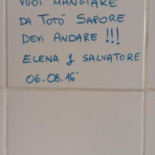 VUOI MANGIARE
DA TOTO' SAPORE
DEVI ANDARE !!!
ELENA & SALVATORE
06.08.16